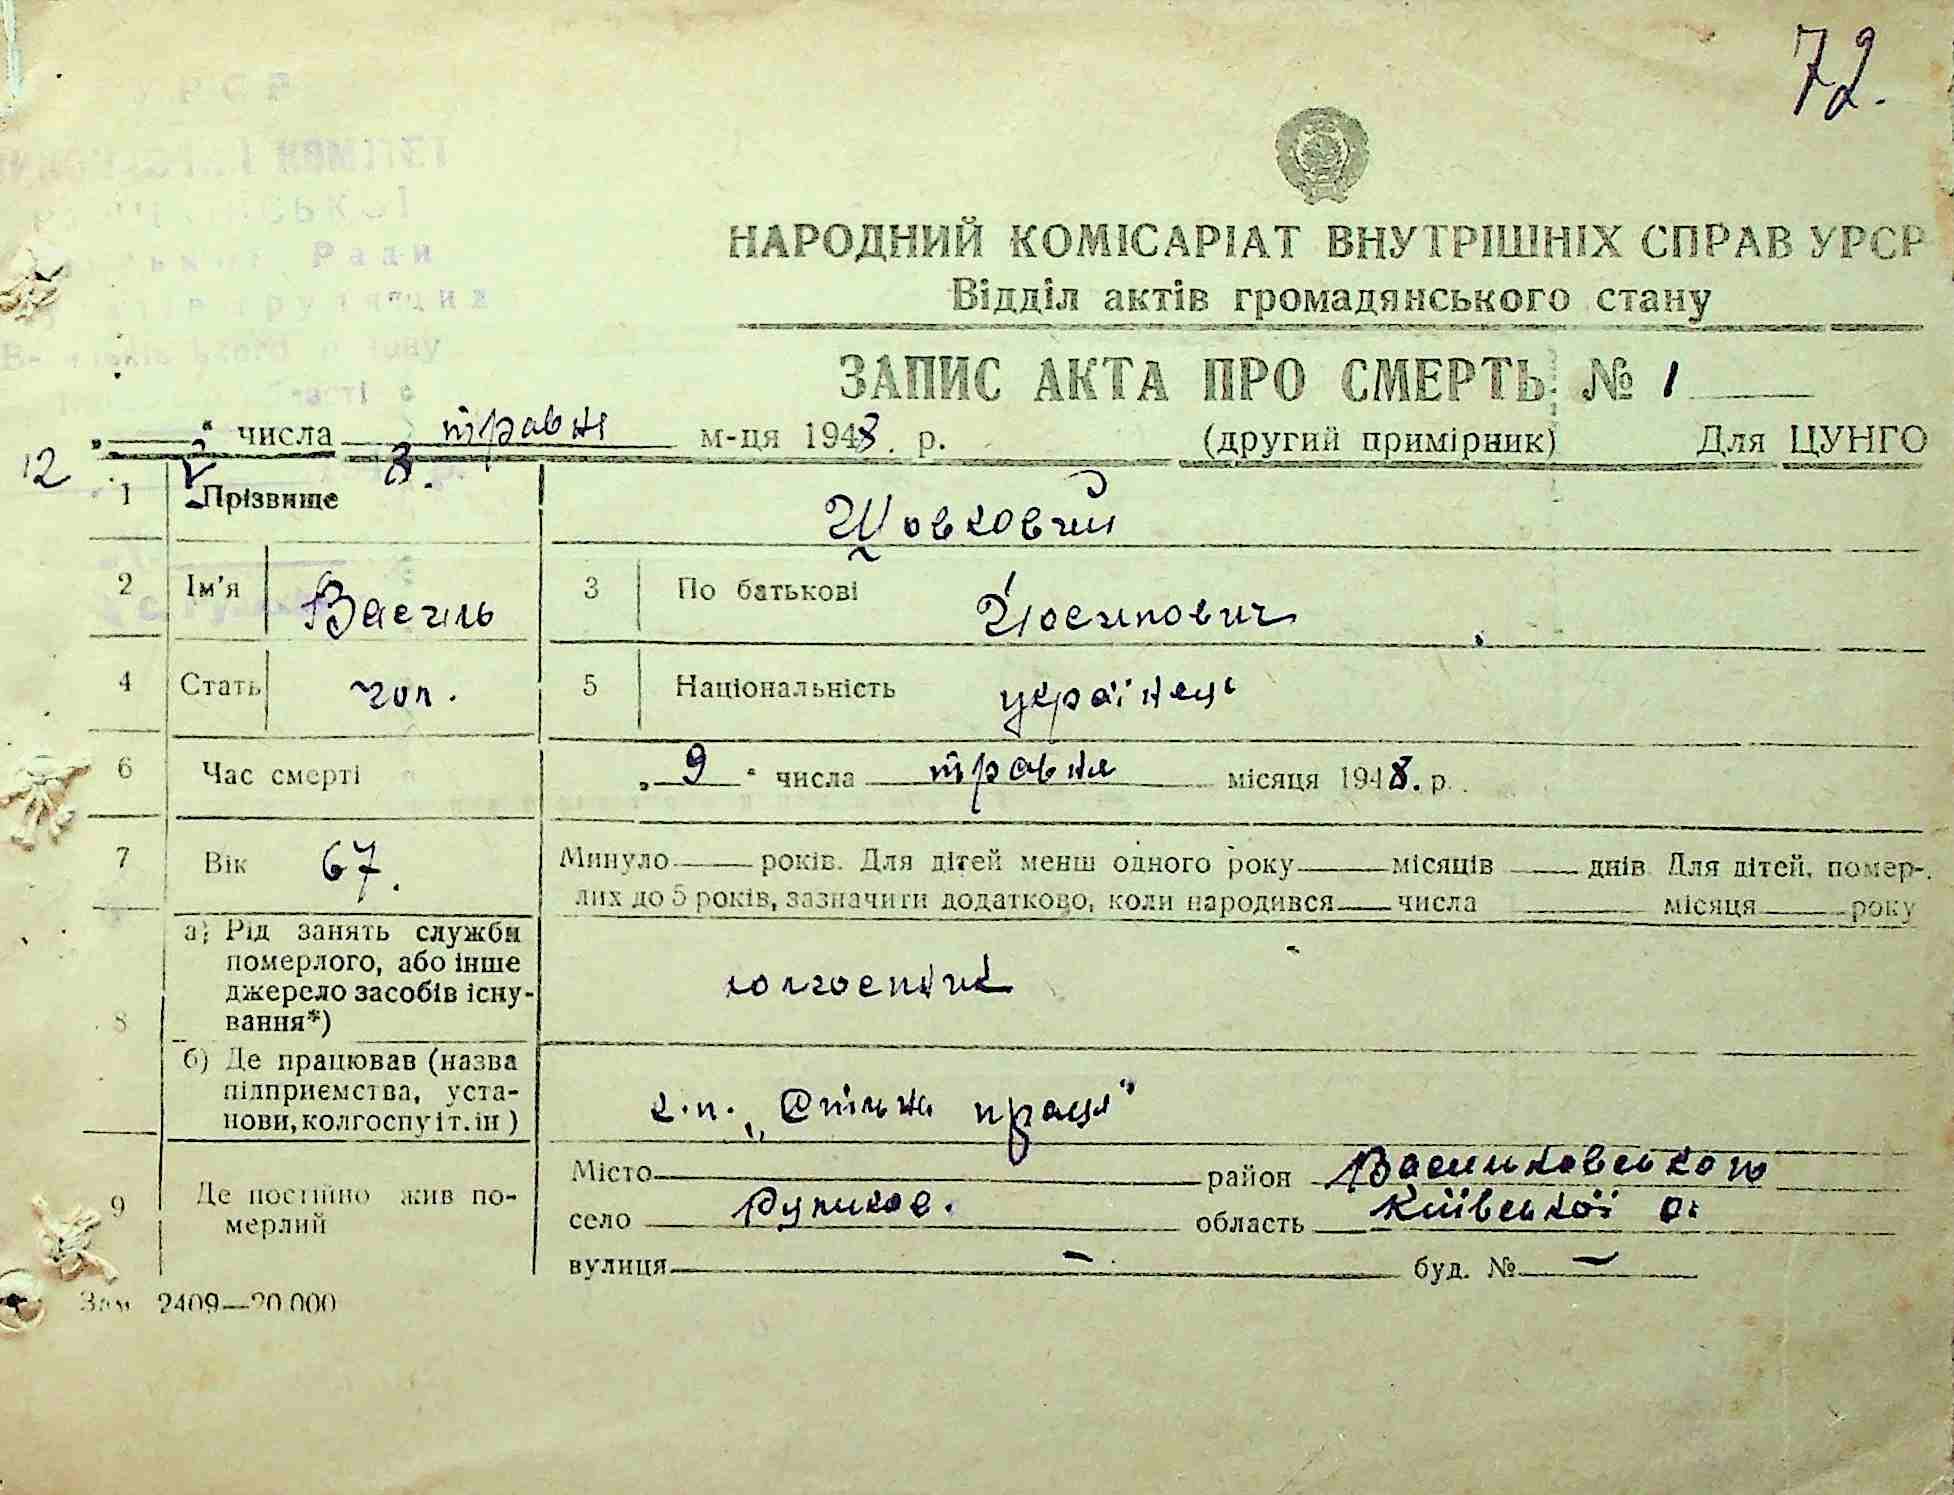 72.
НАРОДНИЙ КОМІСАРІАТ ВНУТРІШНІХ СПРАВ УРСР
Відділ актів громадянського стану
ЗАПИС АКТА ПРО СМЕРТЬ № 1
12 числа травня м-ця 1948 р. (другий примірник) Для ЦУНГО
1 Прізвище Шовковий
2 Ім'я Василь 3 По батькові Йосипович
4 Стать чол. 5 Національність українець
6 Час смерті „9" числа травня місяця 1948. р.
7 Вік 67. Минуло років. Для дітей менш одного року місяців днів. Для дітей, помер-
лих до 5 років, зазначити додатково, коли народився числа місяця року
8 а) Рід занять служби
померлого, або інше
джерело засобів існу-
вання*) колгоспник
б) Де працював (назва
підприємства, уста-
нови, колгоспу і т. ін) к.п. „Спільна праця"
9 Де постійно жив по-
мерлий
Місто район Васильковського
село область Київської о.
вулиця - буд. № -
Зам 2409—20.000